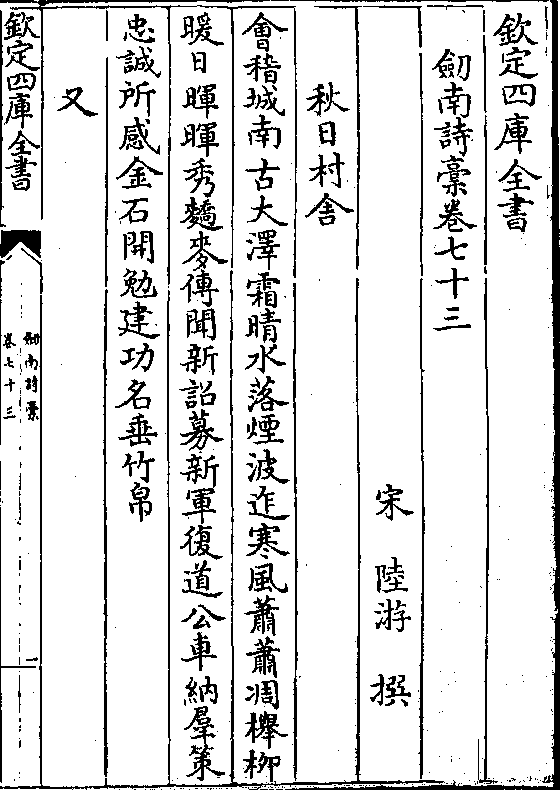 欽定四庫全書
劒南詩稾卷七十三
宋 陸游 撰
秋日村舍
會稽城南古大澤霜晴水落煙波迮寒風蕭蕭凋櫸柳
暖日暉暉秀麰麥傳聞新詔募新軍復道公車納羣策
忠誠所感金石開勉建功名垂竹帛
又
欽定四庫全書
劒南詩稾
卷七十三
一